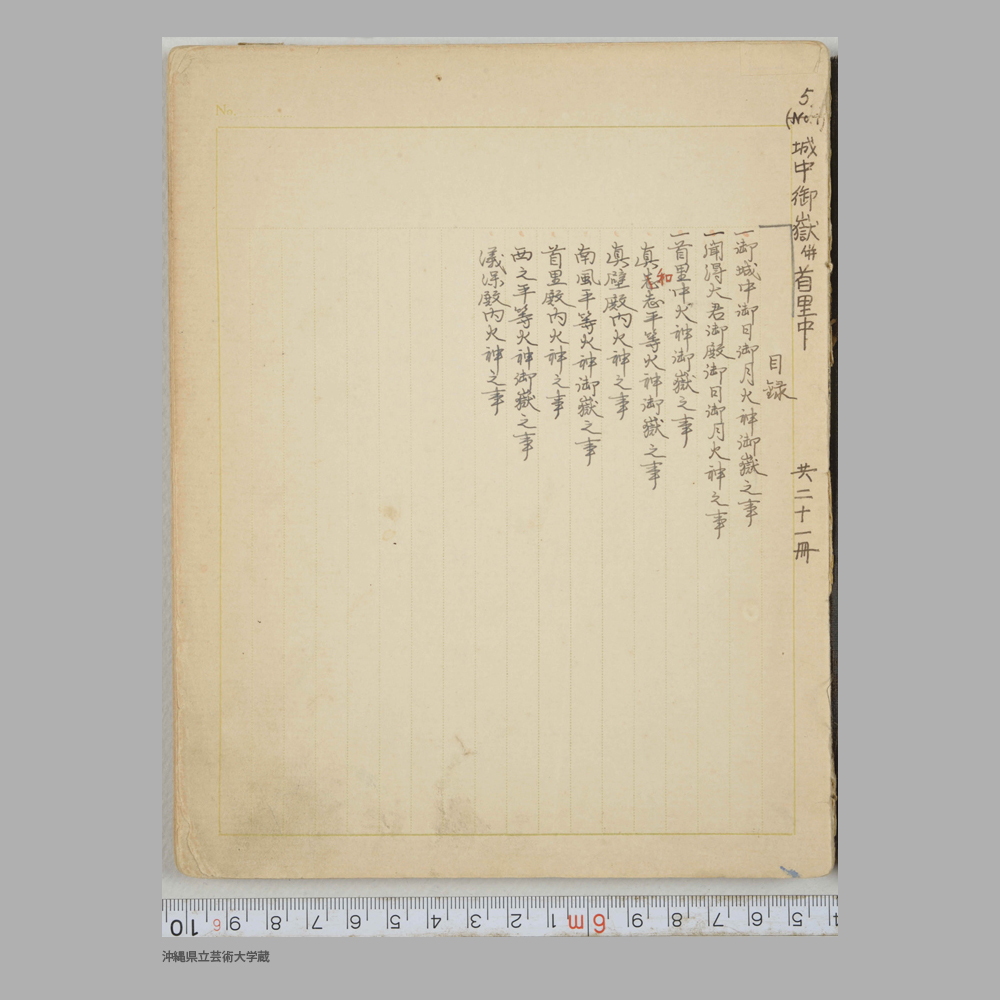 5
(No. 1)
城中御嶽併首里中
共二十一冊
目録
一御城中御日御月火神御嶽之事
一聞得大君御殿御日御月火神之事
一首里中火神御嶽之事
真志平等火神御嶽之事
和
真壁殿内火神之事
南風平等火神御嶽之事
首里殿内火神之事
西之平等火神御嶽之事
儀保殿内火神之事
No.
10 6 9 8 7 6 5 4 3 2 1 6m 9 8 7 6 5 4
沖縄県立芸術大学蔵